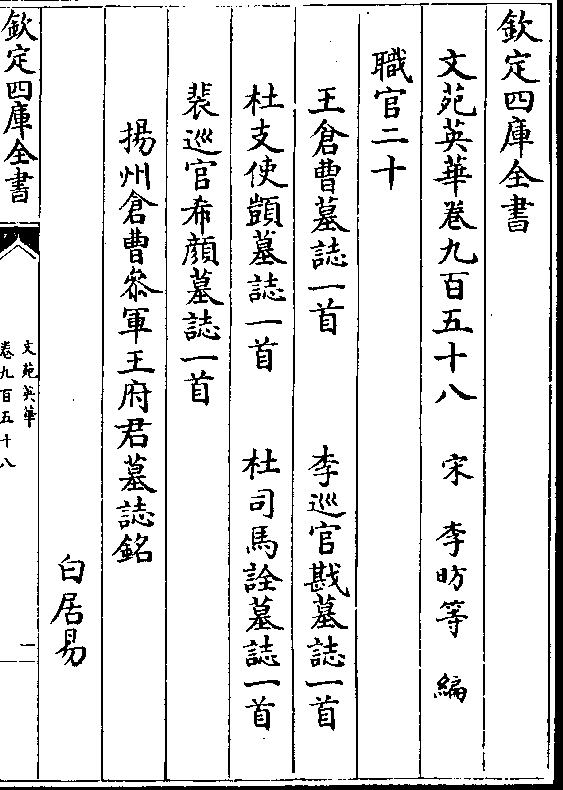 欽定四庫全書
文苑英華卷九百五十八 宋 李昉等 編
職官二十
王倉曹墓誌一首 李巡官戡墓誌一首
杜支使顗墓誌一首 杜司馬詮墓誌一首
裴巡官希顔墓誌一首
揚州倉曹叅軍王府君墓誌銘
白居易
欽定四庫全書
文苑英華
卷九百五十八
一